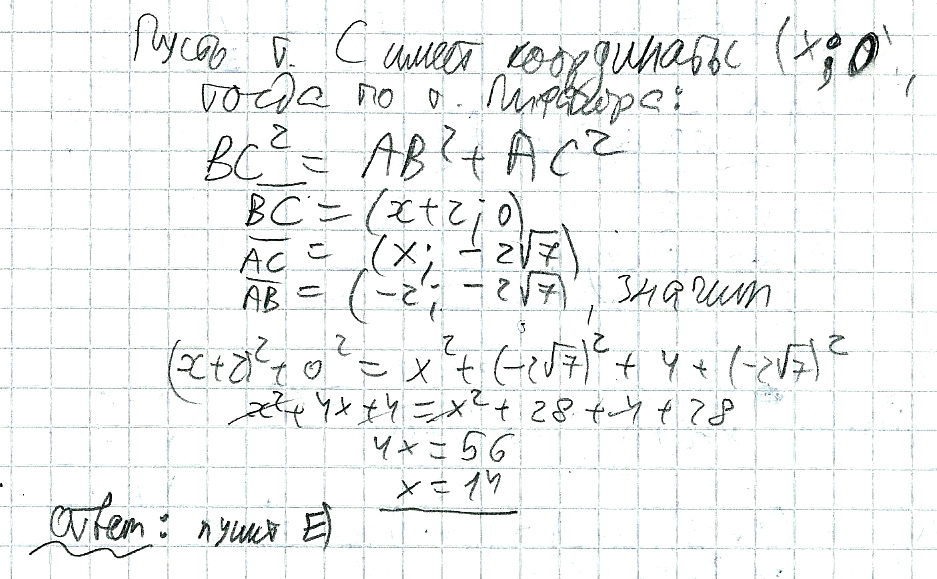 Пусть т. C имеет координаты (x; 0),
тогда по т. Пифагора:
BC² = AB² + AC²
B̅C̅ = (x+2; 0)
A̅C̅ = (x; -2√7)
A̅B̅ = (-2; -2√7), значит
(x+2)² + 0² = x² + (-2√7)² + 4 + (-2√7)²
x² + 4x + 4 = x² + 28 + 4 + 28
4x = 56
x = 14
Ответ: пункт E)